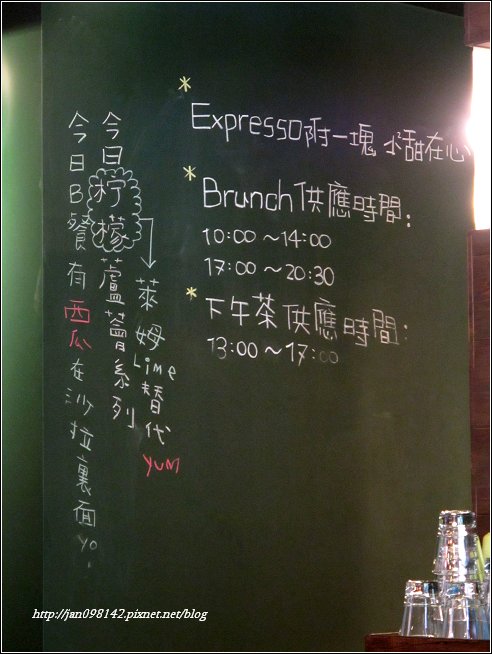 * Expresso附一塊 小甜在心
* Brunch供應時間:
10:00～14:00
17:00～20:30
* 下午茶供應時間:
13:00～17:00
今日檸檬蘆薈系列
萊姆Lime替代YUM
今日B餐有西瓜在沙拉裏面yo.
http://jan098142.pixnet.net/blog